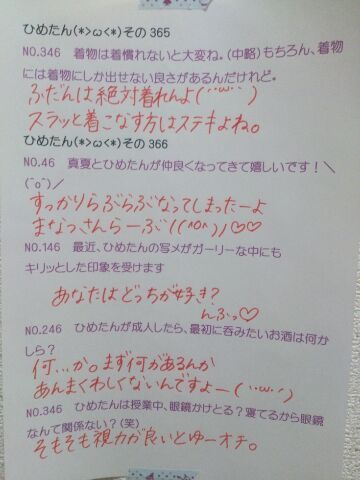 ひめたん(*>ω<*)その365
NO.346　着物は着慣れないと大変ね。(中略)もちろん、着物
には着物にしか出せない良さがあるんだけれど。
ふだんは絶対着れんよ(´･ω･｀)
スラッと着こなす方はステキよね。
ひめたん(*>ω<*)その366
NO.46　真夏とひめたんが仲良くなってきて嬉しいです！＼
(^o^)／
すっかりらぶらぶなってしまったーよ
まなつさんらーぶ!(^o^)♡♡
NO.146　最近、ひめたんの写メがガーリーな中にも
キリッとした印象を受けます
あなたはどっちが好き?
んふっ♡
NO.246　ひめたんが成人したら、最初に呑みたいお酒は何か
しら？
何…か。まず何があるんか
あんまくわしくないんですよー(´･ω･｀)
NO.346　ひめたんは授業中、眼鏡かけとる？寝てるから眼鏡
なんて関係ない？(笑)
そもそも視力が良いとゆーオチ。